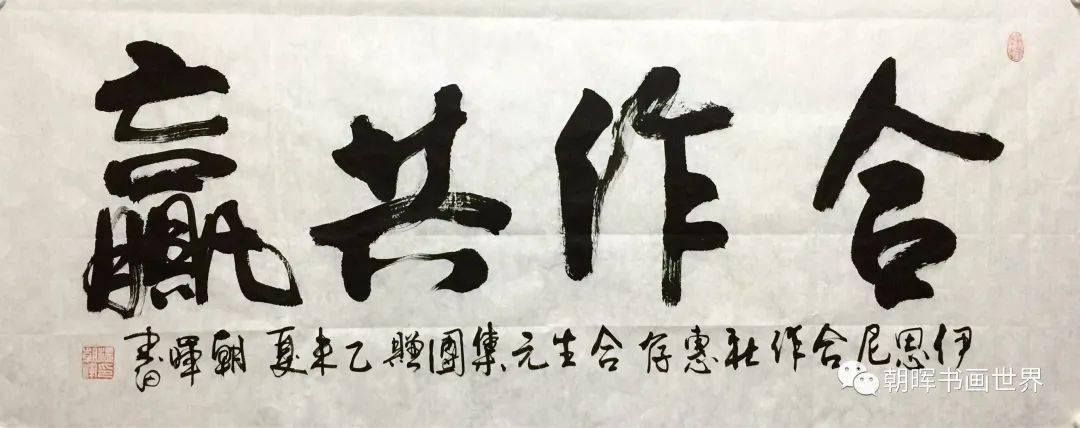 合作共赢
伊恩尼合作社惠存合生元集團贈乙未夏朝暉书
朝晖书画世界